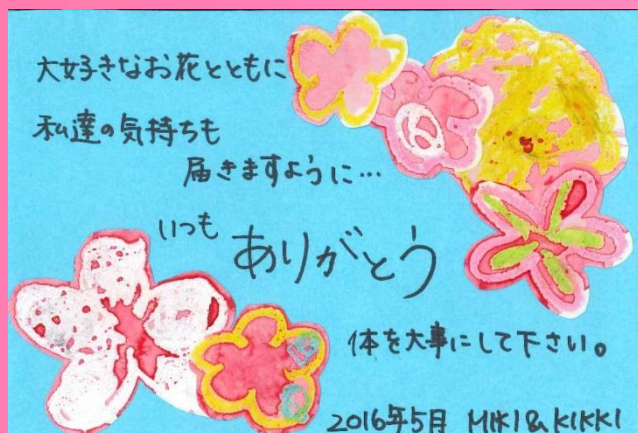 大好きなお花とともに
私達の気持ちも
届きますように…
いつも ありがとう
体を大事にして下さい。
2016年5月 MIKI & KIKKI